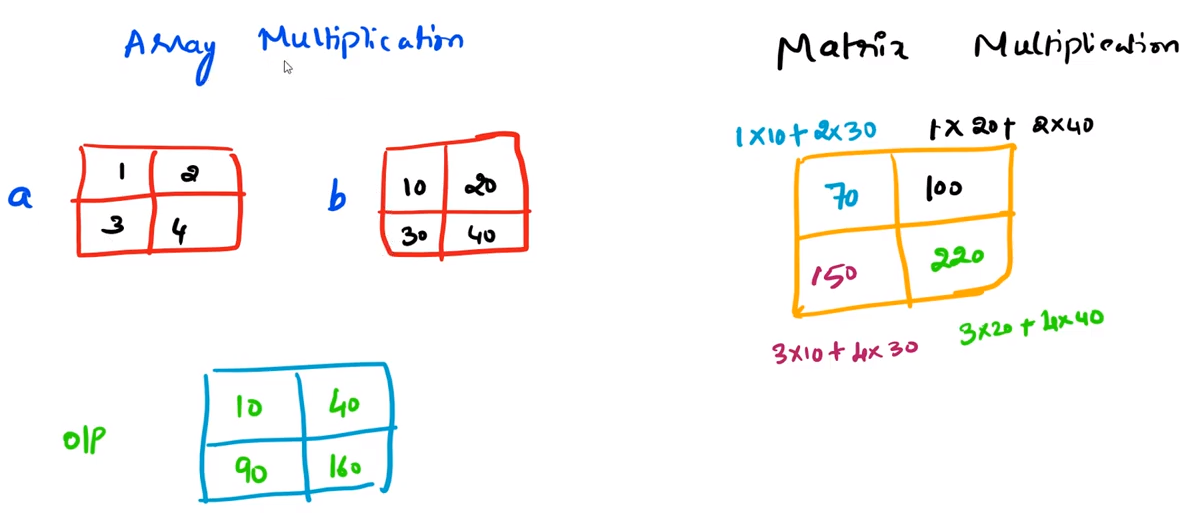 Array Multiplication
a
1 2
3 4
b
10 20
30 40
O/P
10 40
90 160
Matrix Multiplication
1x10+2x30 1x20+2x40
70 100
150 220
3x10+4x30 3x20+4x40